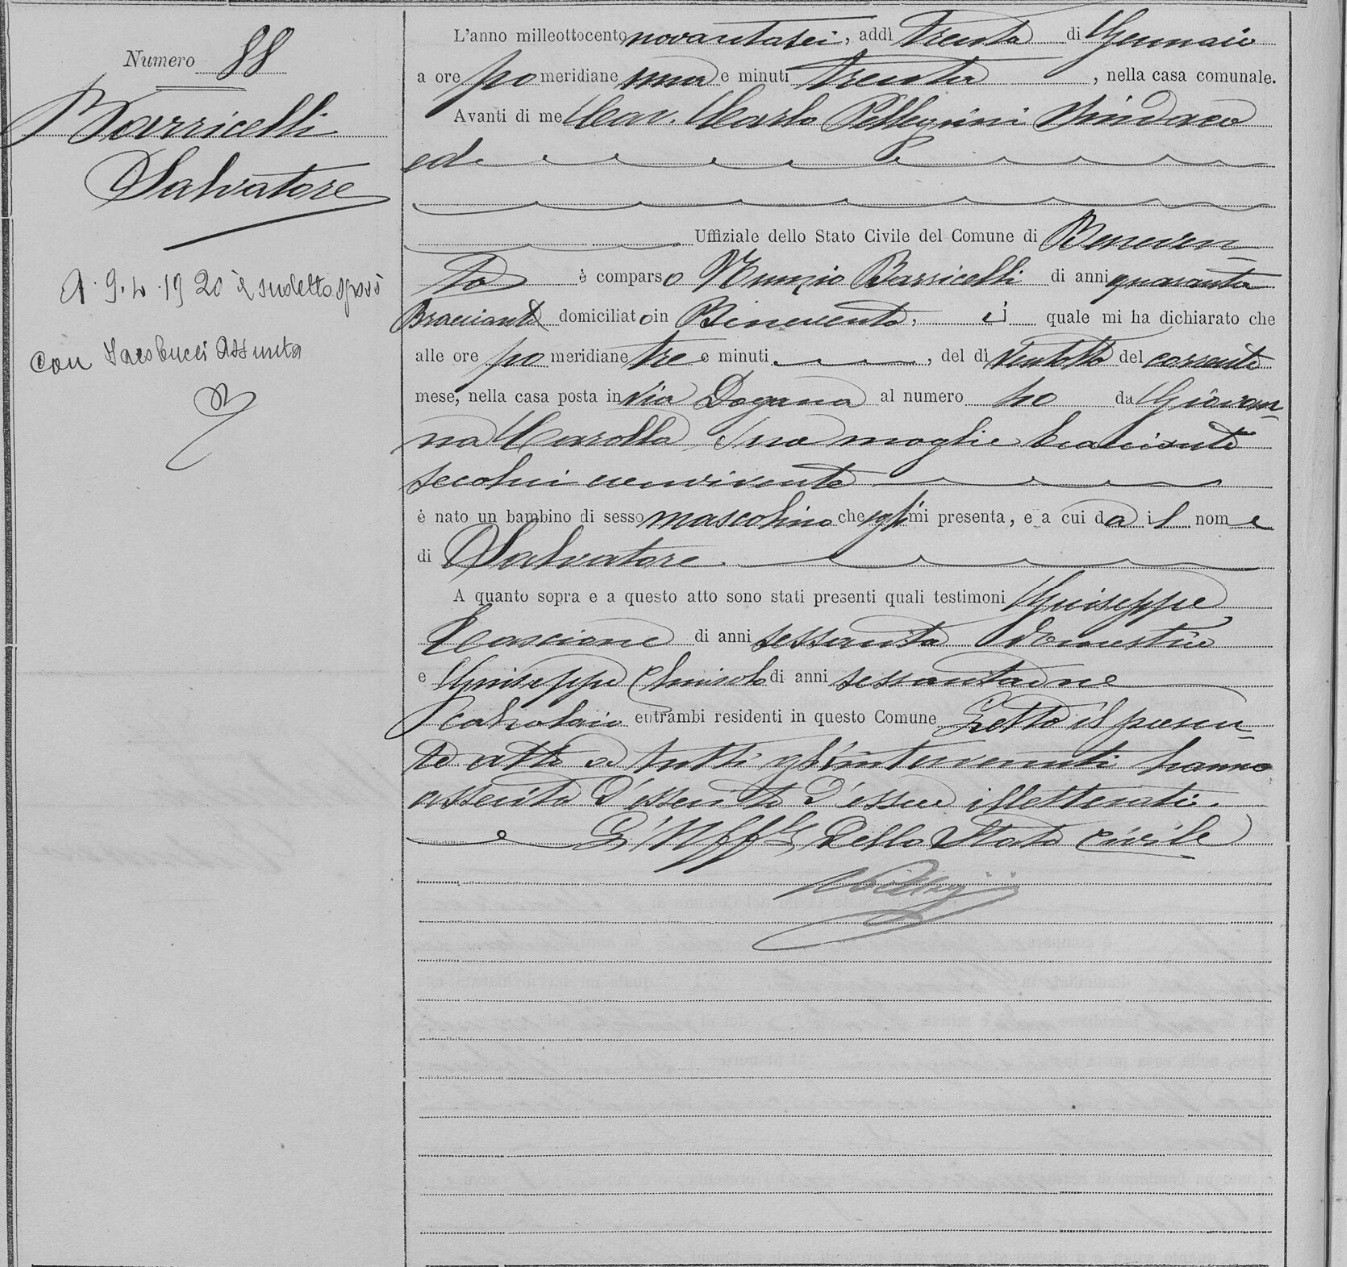 Numero 88
Barricelli
Salvatore
A. 9.4.1920 il sudetto sposò
con Iacobucci Assunta
L'anno milleottocento novantasei, addì Trenta di Gennaio
a ore po meridiane una e minuti trenta, nella casa comunale.
Avanti di me Cav. Carlo Pellegrini Sindaco
ed
Uffiziale dello Stato Civile del Comune di Beneven
to è comparso Nunzio Barricelli di anni quaranta
Bracciante domiciliato in Benevento, il quale mi ha dichiarato che
alle ore po meridiane tre e minuti, del dì ventotto del corrente
mese, nella casa posta in via Dogana al numero da Giovan
na Carolla sua moglie bracciante
secolui convivente
è nato un bambino di sesso mascolino che egli mi presenta, e a cui dà il nome
di Salvatore
A quanto sopra e a questo atto sono stati presenti quali testimoni Giuseppe
di anni sessanta domestico
e Giuseppe di anni sessantadue
calzolaio entrambi residenti in questo Comune Letto il presen
te atto a tutti gl'intervenuti hanno
asserito d'asserito d'essere illetterati.
L'Uffle dello Stato Civile